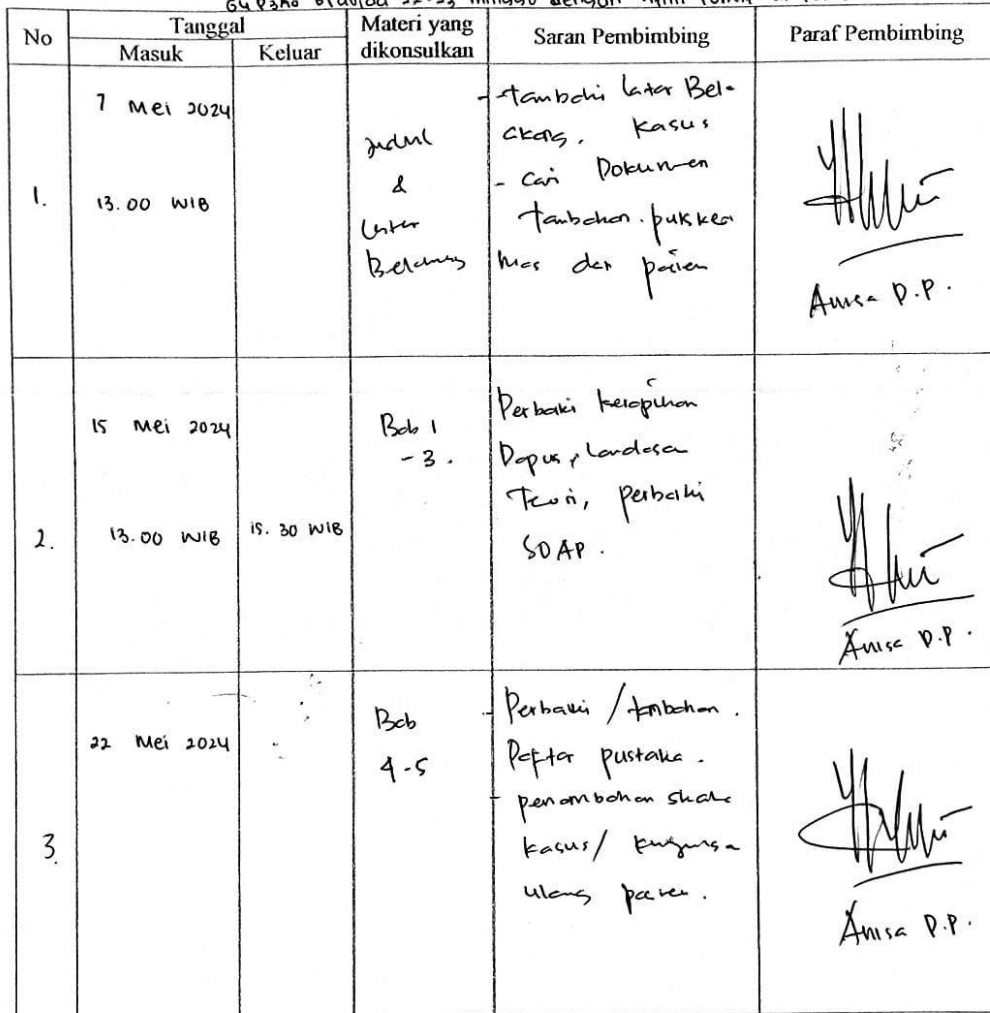 G4P3A0 Gravida 22-23 minggu dengan
No
Tanggal
Masuk
Keluar
Materi yang
dikonsulkan
Saran Pembimbing
Paraf Pembimbing
1.
7 Mei 2024
13.00 WIB
Judul
&
Latar
Belakang
- tambahi latar Bel-
akang, kasus
- Cari Dokumen
tambahan puskes
mas dan pasien
Anisa D.P.
2.
15 Mei 2024
13.00 WIB
15.30 WIB
Bab 1
- 3.
Perbaiki kerapihan
Dapus, Landasan
Teori, perbaiki
SOAP.
Anisa D.P.
3.
22 Mei 2024
Bab
4-5
- Perbaiki / tambahan.
Daftar pustaka.
- penambahan
kasus/
ulang pasien.
Anisa D.P.